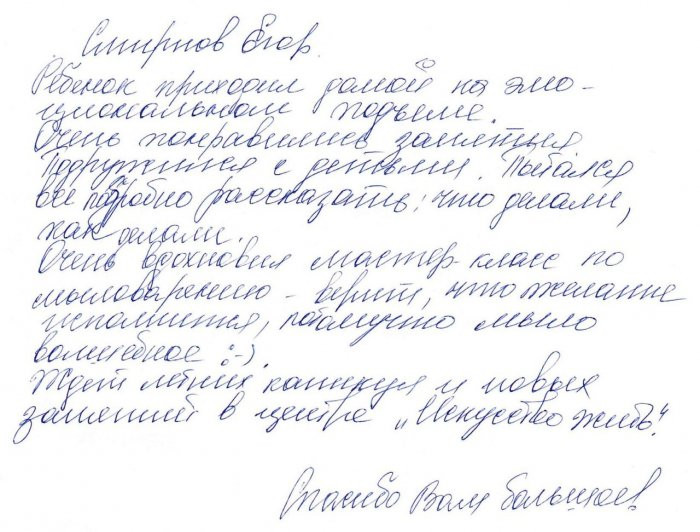 Смирнов Егор.
Ребенок приходил домой на эмо-
циональном подъеме.
Очень понравились занятия
Подружился с детьми. Пытался
все подробно рассказать: что делали,
как делали.
Очень вдохновил мастер-класс по
мыловарению – верит, что желание
исполнится, потомучто мыло
волшебное :-).
Ждет летних каникул и новых
занятий в центре „Искусство жить".
Спасибо Вам большое